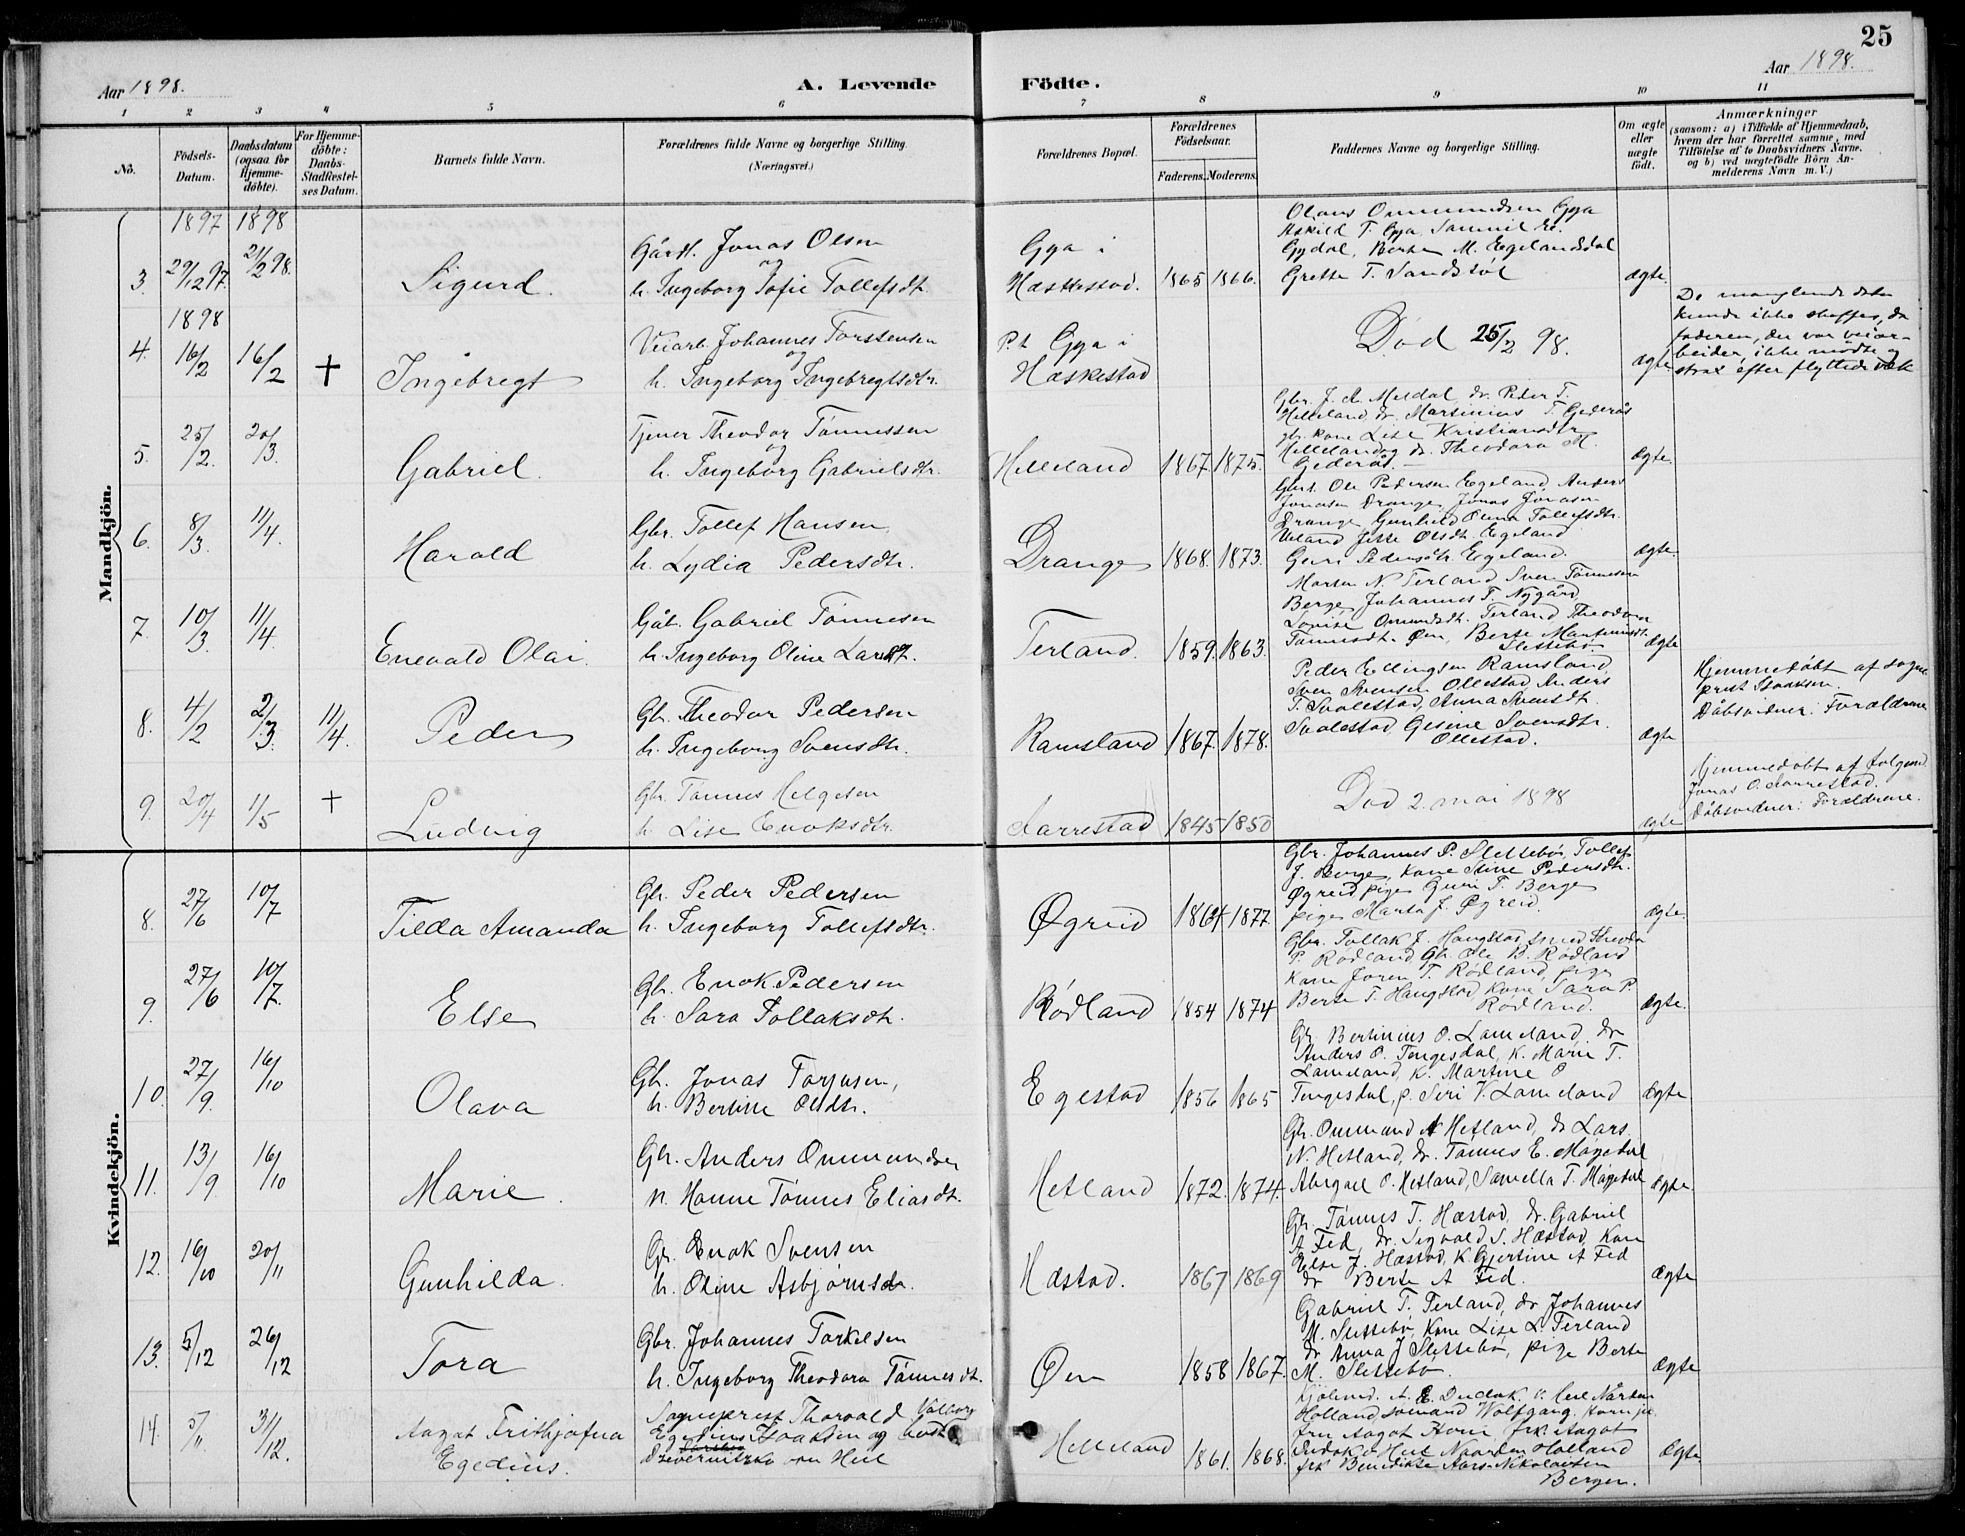 25
Aar 1898.
A. Levende
Födte.
Aar 1898.
1 2 3 4 5 6 7 8 9 10 11
No.
Födsels-
Datum.
Daabsdatum
(ogsaa for
Hjemme-
döbte).
For Hjemme-
döbte:
Daabs-
Stadfæstel-
ses Datum.
Barnets fulde Navn.
Forældrenes fulde Navne og borgerlige Stilling
(Næringsvei.)
Forældrenes Bopæl.
Forældrenes
Födselsaar.
Faderens. Moderens.
Faddernes Navne og borgerlige Stilling.
Om ægte
eller
uægte
födt.
Anmærkninger
(saasom: a) i Tilfælde af Hjemmedaab,
hvem der har forrettet samme, med
Tilföielse af to Daabsvidners Navne,
og b) ved uægtefödte Börn An-
melderens Navn m. V.)
Mandkjön.
1897 1898
3. 29/12 97. 21/2 98. Sigurd.
Gårdb. Jonas Olsen
og
h. Ingeborg Sofie Tollefsdt.
Gya i
Hæskestad. 1865 1866.
Olaus Ommundsen Gya
Askild T. Gya, Samuel
Gydal, Berte M. Egelandsdal
Grethe T. Sandstøl
ægte.
1898
4. 16/2 16/2 + Ingebregt
Veiarb. Johannes Torstensen
og
h. Ingeborg Ingebregtsdtr.
P.t. Gya i
Hæskestad
Død 25/2 98.
ægte.
De manglende data
kunde ikke skaffes, da
faderen, der var veiar-
beider, ikke mødte og
strax efter flyttede væk
5. 25/2. 20/3. Gabriel.
Tjener Theodor Tønnessen
og
h. Ingeborg Gabrielsdtr.
Helleland 1867. 1875.
Gbr. J. A. Meldal, dr. Peder T.
Helleland, dr. Martinius T. Gederås
gbr. kone Lise Kristiansdtr
Helleland og dr. Theodora M.
Gederås.
ægte.
6. 8/3. 11/4. Harald
Gbr. Tollef Hansen
h. Lydia Pedersdtr.
Drange 1868. 1873.
Gbr. Ole Pedersen Egeland, Anders
Jonasen Drange, Jonas Jonasen
Drange, Gunhild Olena Tollefsdtr.
Ueland, Jitte Olsdt. Egeland
Guri Pedersdtr. Egeland.
ægte.
7. 10/3 11/4 Enevald Olai.
Gåb. Gabriel Tønnesen
h. Ingeborg Oline Larsdt.
Terland. 1859. 1863.
Morten N. Terland, Sven Tønnesen
Berge, Johannes T. Nygård
Lovise Omundsdt. Terland, Theodora
Tønnesdt. Øen, Berte Martinusdt.
Slettebø
ægte
8. 4/2 2/3. 11/4. Peder
Gb. Theodor Pedersen
h. Ingeborg Svensdtr.
Ramsland 1867. 1878.
Peder Ellingsen Ramsland,
Sven Svensen Ollestad, Anders
T. Svalestad, Anna Svensdt.
Svalestad, Gesine Svensdtr.
Ollestad.
ægte
Hjemmedøbt af sogne-
prest Isaaksen.
Dåbsvidner: Forældrene
9. 20/4 1/5 + Ludvig
Gbr. Tønnes Helgesen
h. Lise Enoksdtr.
Aarrestad 1845 1850
Død 2. mai 1898
ægte
Hjemmedøbt af
Jonas O. Aarrestad.
Dåbsvidner: Forældrene.
Kvindekjön.
8. 27/6 10/7 Tilda Amanda
Gb. Peder Pedersen
h. Ingeborg Tollefsdtr.
Øgreid 1864 1877.
Gbr. Johannes P. Slettebø, Tollef
J. Berge, kone Stine Pedersdtr.
Øgreid, pige Guri T. Berge
pige Marta J. Øgreid.
ægte.
9. 27/6 10/7. Else
Gb. Enok Pedersen
h. Sara Tollaksdtr.
Rødland 1854 1874
Gbr. Tollak J. Haugstad, smed Theodor
P. Rødland, Gb. Ole B. Rødland
Kone Joren T. Rødland, pige
Berte T. Haugstad, Kone Sara P.
Rødland.
ægte.
10. 27/9. 16/10 Olava
Gb. Jonas Torjusen,
h. Bertine Olsdtr.
Egestad 1856 1865
Gb. Bertinius O. Lameland, dr
Anders O. Tengesdal, K. Marie T.
Lameland, K. Martine O
Tengesdal, p. Seri V. Lameland
ægte
11. 13/9 16/10 Marie.
Gb. Anders Ommundsen
h. Hanne Tønnes Eliasdt.
Hetland 1872. 1874.
Gb. Ommund A Hetland, dr Lars
N. Hetland, dr. Tønnes E. Mågedal
Abigael O. Hetland, Samella T. Mågedal
ægte.
12. 16/10 20/11 Gunhilda.
Gb. Enok Svensen
h. Oline Asbjørnsdr.
Hæstad. 1867 1869
Gb. Tønnes T. Hæstad, dr. Gabriel
A Fed, dr. Sigvald S. Hæstad, Kone
Else J. Hæstad, K. Gjertine A Fed
dr Berte A Fed.
ægte
13. 5/12 26/12 Tora
Gbr. Johannes Torkelsen
h. Ingeborg Theodora Tønnesdt.
Øen 1858 1867.
Gabriel T. Terland, dr Johannes
M. Slettebø, Kone Lise L. Terland
dr Anna J Slettebø, pige Berte
M. Slettebø
ægte
14. 5/11. 31/12. Aagot Frithjofna
Egedius.
Sogneprest Thorvald
Egedius Isaaksen og hust Valborg
van Heil
Helleland 1861. 1868.
Holland, sømand Wolfgang
fru Aagot Horn, frk. Aagot
Holland
frk Benedikte Aars-Nikolaisen
Bergen.
ægte